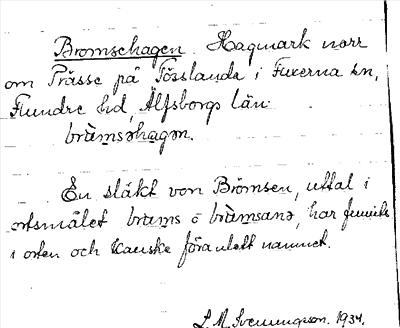 Bromsehagen. Hagmark norr
om Prässe på Tösslanda i Fuxerna sn,
Flundre hd, Älfsborgs län.
bràmsəhagən.
En släkt von Brömsen, uttal i
ortsmålet brams o bràmsanə, har funnits
i orten och kanske föranlett namnet.
L. M. Svenungsson. 1934.